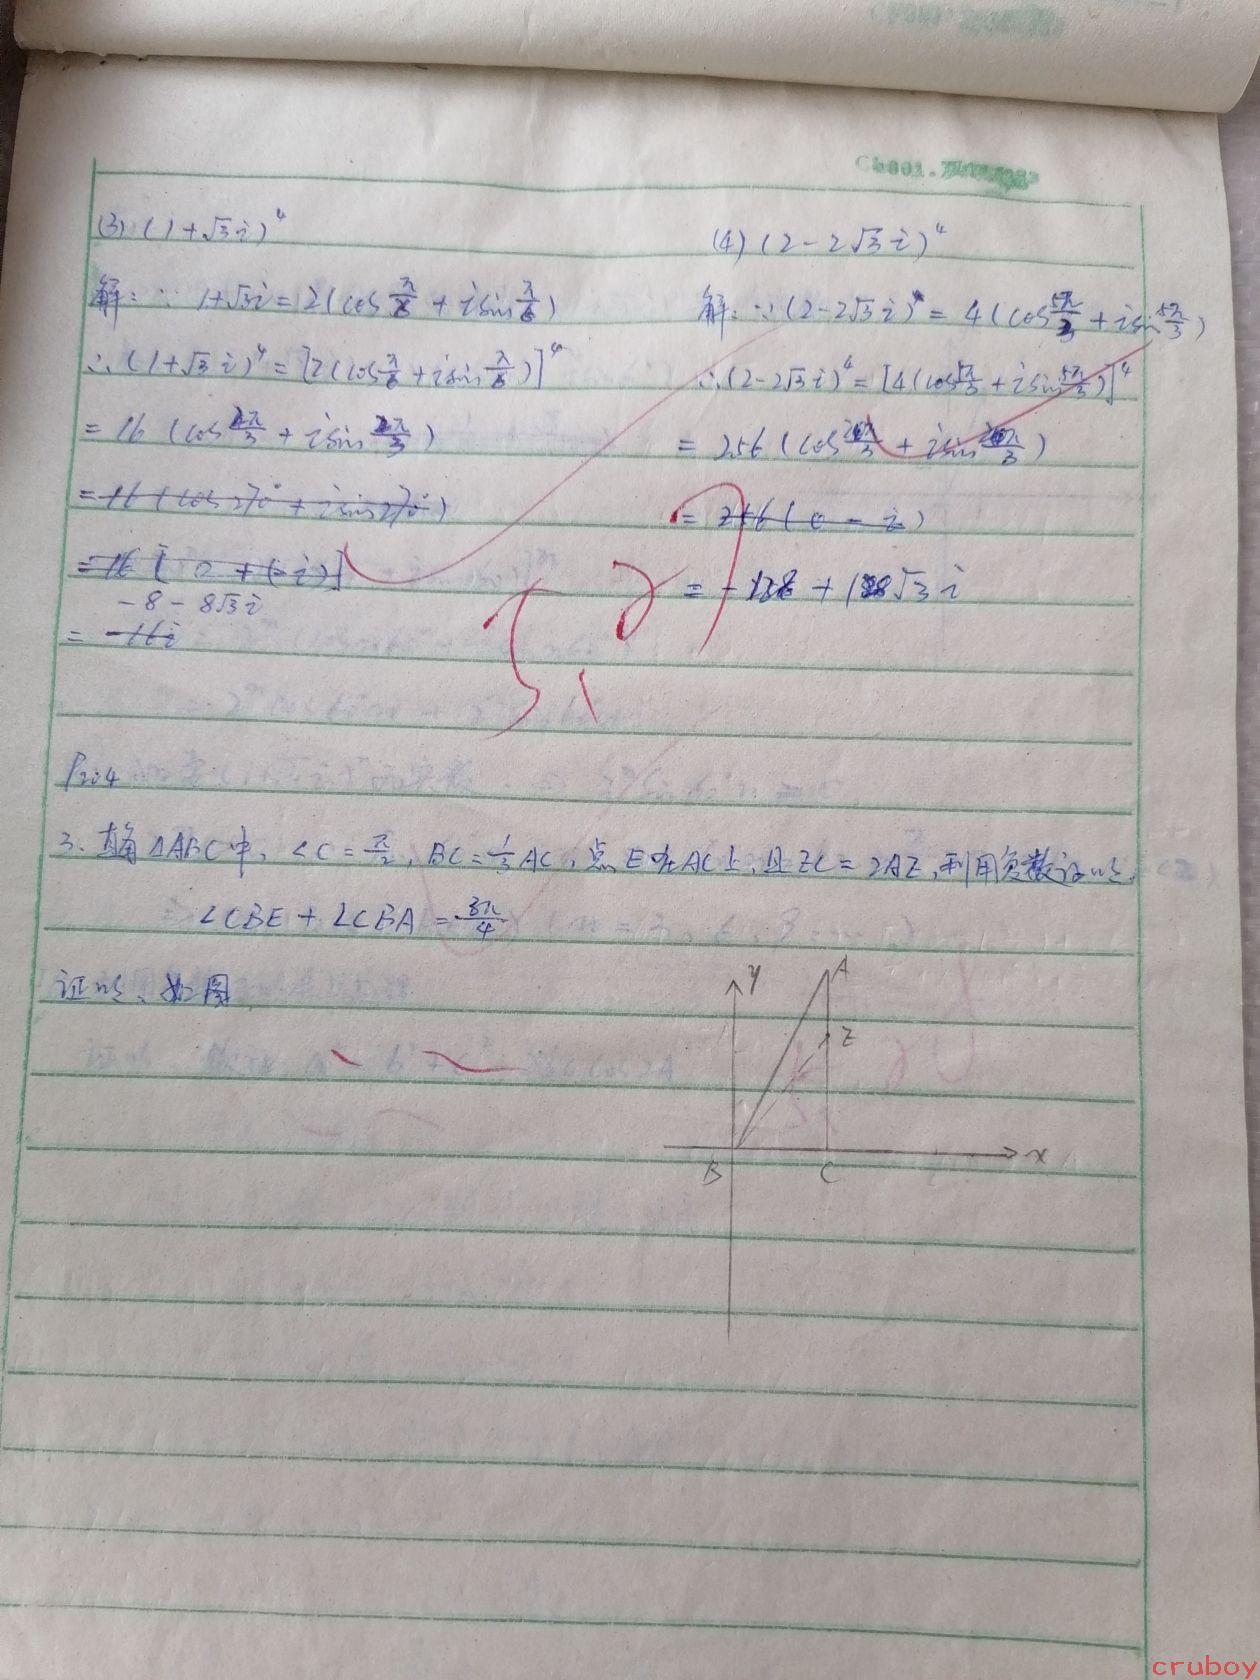 Cb001.
(3) (1+√3i)⁴
解:∵ 1+√3i=2(cosπ/3+isinπ/3)
∴(1+√3i)⁴=[2(cosπ/3+isinπ/3)]⁴
=16(cos4π/3+isin4π/3)
=16(cos270°+isin270°)
=16[0+(-i)]
-8-8√3i
=-16i
(4) (2-2√3i)⁴
解:∵(2-2√3i)=4(cos5π/3+isin5π/3)
∴(2-2√3i)⁴=[4(cos5π/3+isin5π/3)]⁴
=256(cos20π/3+isin20π/3)
=256(0-i)
=-128+128√3i
P204
3. 直角△ABC中,∠C=π/2,BC=1/3AC,点E在AC上,且EC=2AE,利用复数证明:
∠CBE+∠CBA=3π/4
证明、如图
y
A
E
B
C
x
cruboy